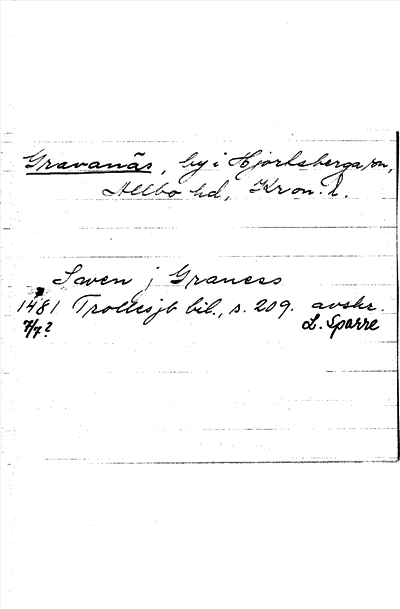 Gravanäs, by i Hjortsberga sn,
Allbo hd, Kron. l.
Swen j Graness
1481 Trollesjb bil., s. 209. avskr.
7/7? L. Sparre